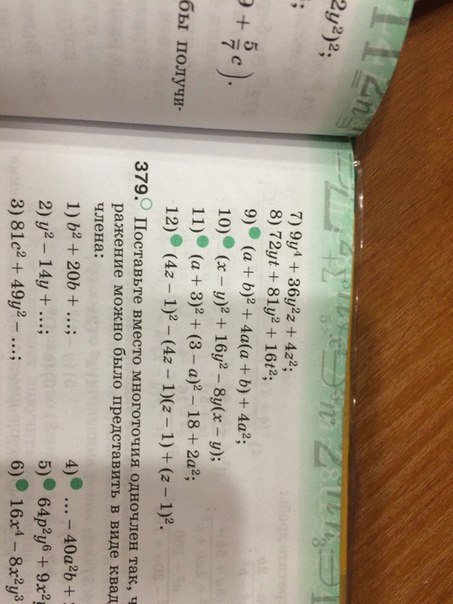 2y²)²;
9 + 5/7 c).
бы получи-
7) 9y⁴ + 36y²z + 4z²;
8) 72yt + 81y² + 16t²;
9) (a + b)² + 4a(a + b) + 4a²;
10) (x − y)² + 16y² − 8y(x − y);
11) (a + 3)² + (3 − a)² − 18 + 2a²;
12) (4z − 1)² − (4z − 1)(z − 1) + (z − 1)².
379. Поставьте вместо многоточия одночлен так, ч
ражение можно было представить в виде квад
члена:
1) b² + 20b + ...; 4) ... − 40a²b +
2) y² − 14y + ...; 5) 64p²y⁶ + 9x²
3) 81c² + 49y² − ...; 6) 16x⁴ − 8x²y³